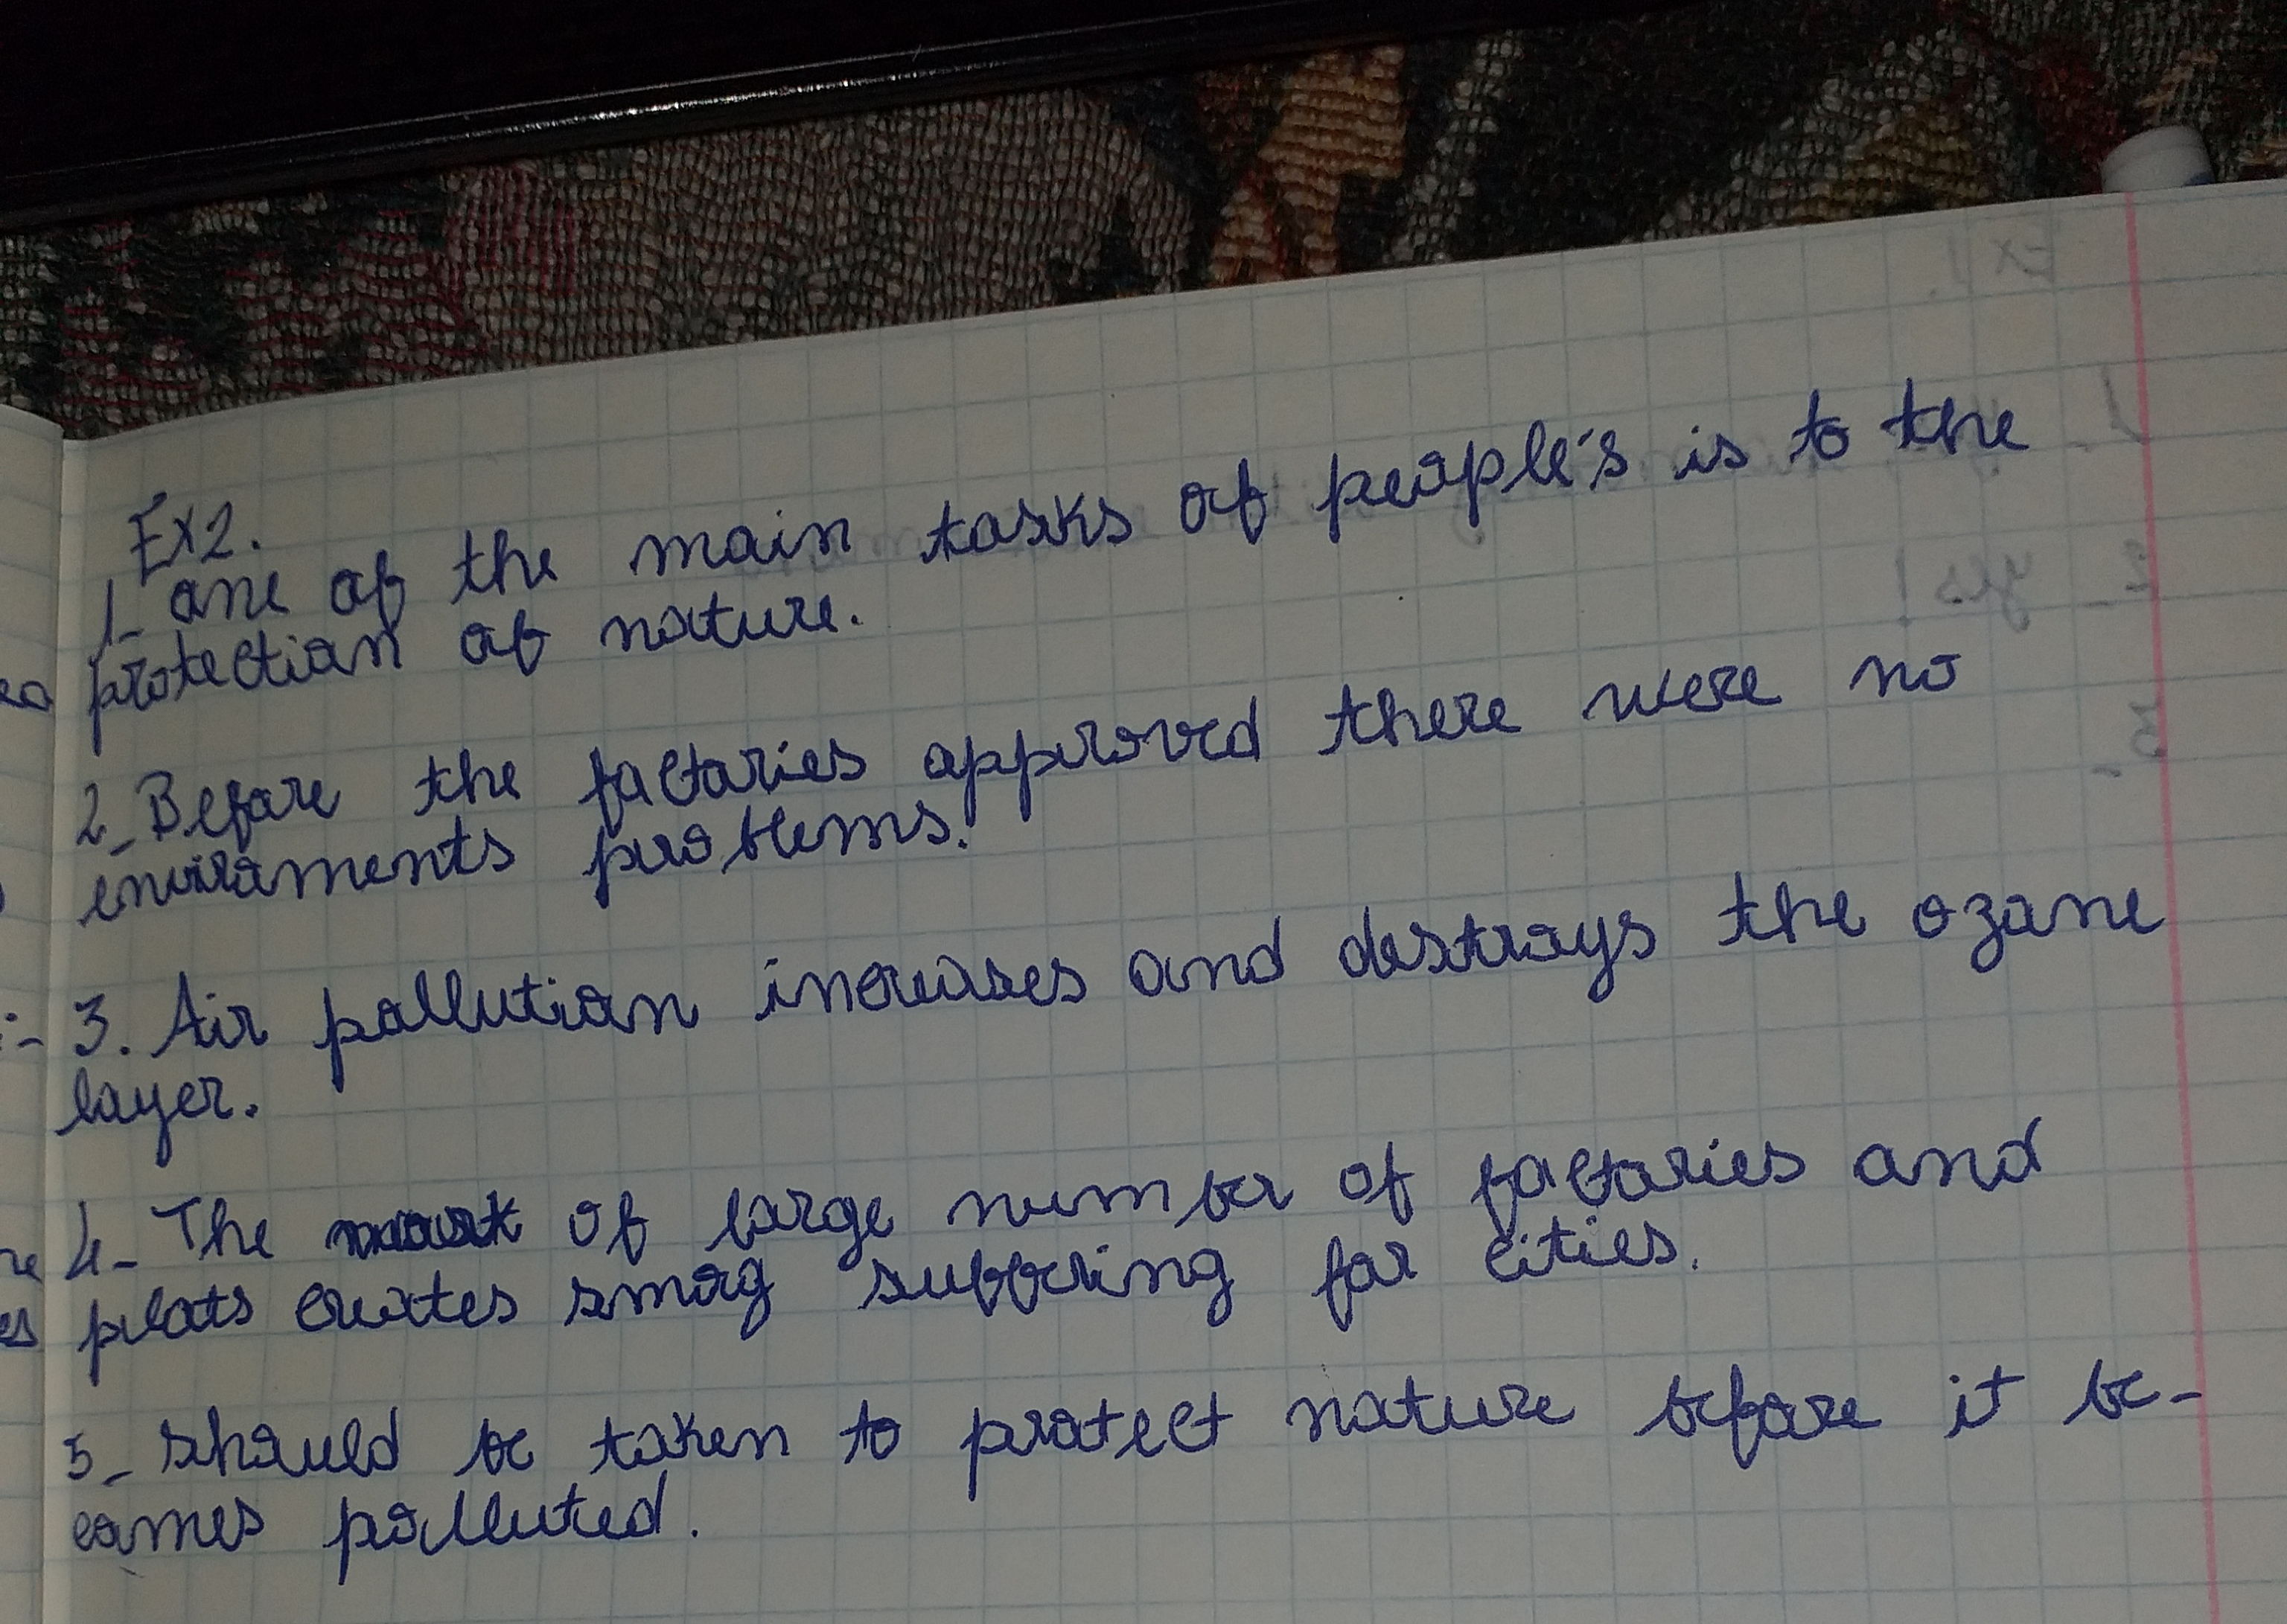 Ex2.
1_ One of the main tasks of people's is to the
protection of nature.
2_ Before the factories approved there were no
enviroments problems.
3. Air pollution increases and destroys the ozone
layer.
4_ The work of large number of factories and
plats creates smog suffering for cities.
5_ Should be taken to protect nature before it be-
comes polluted.